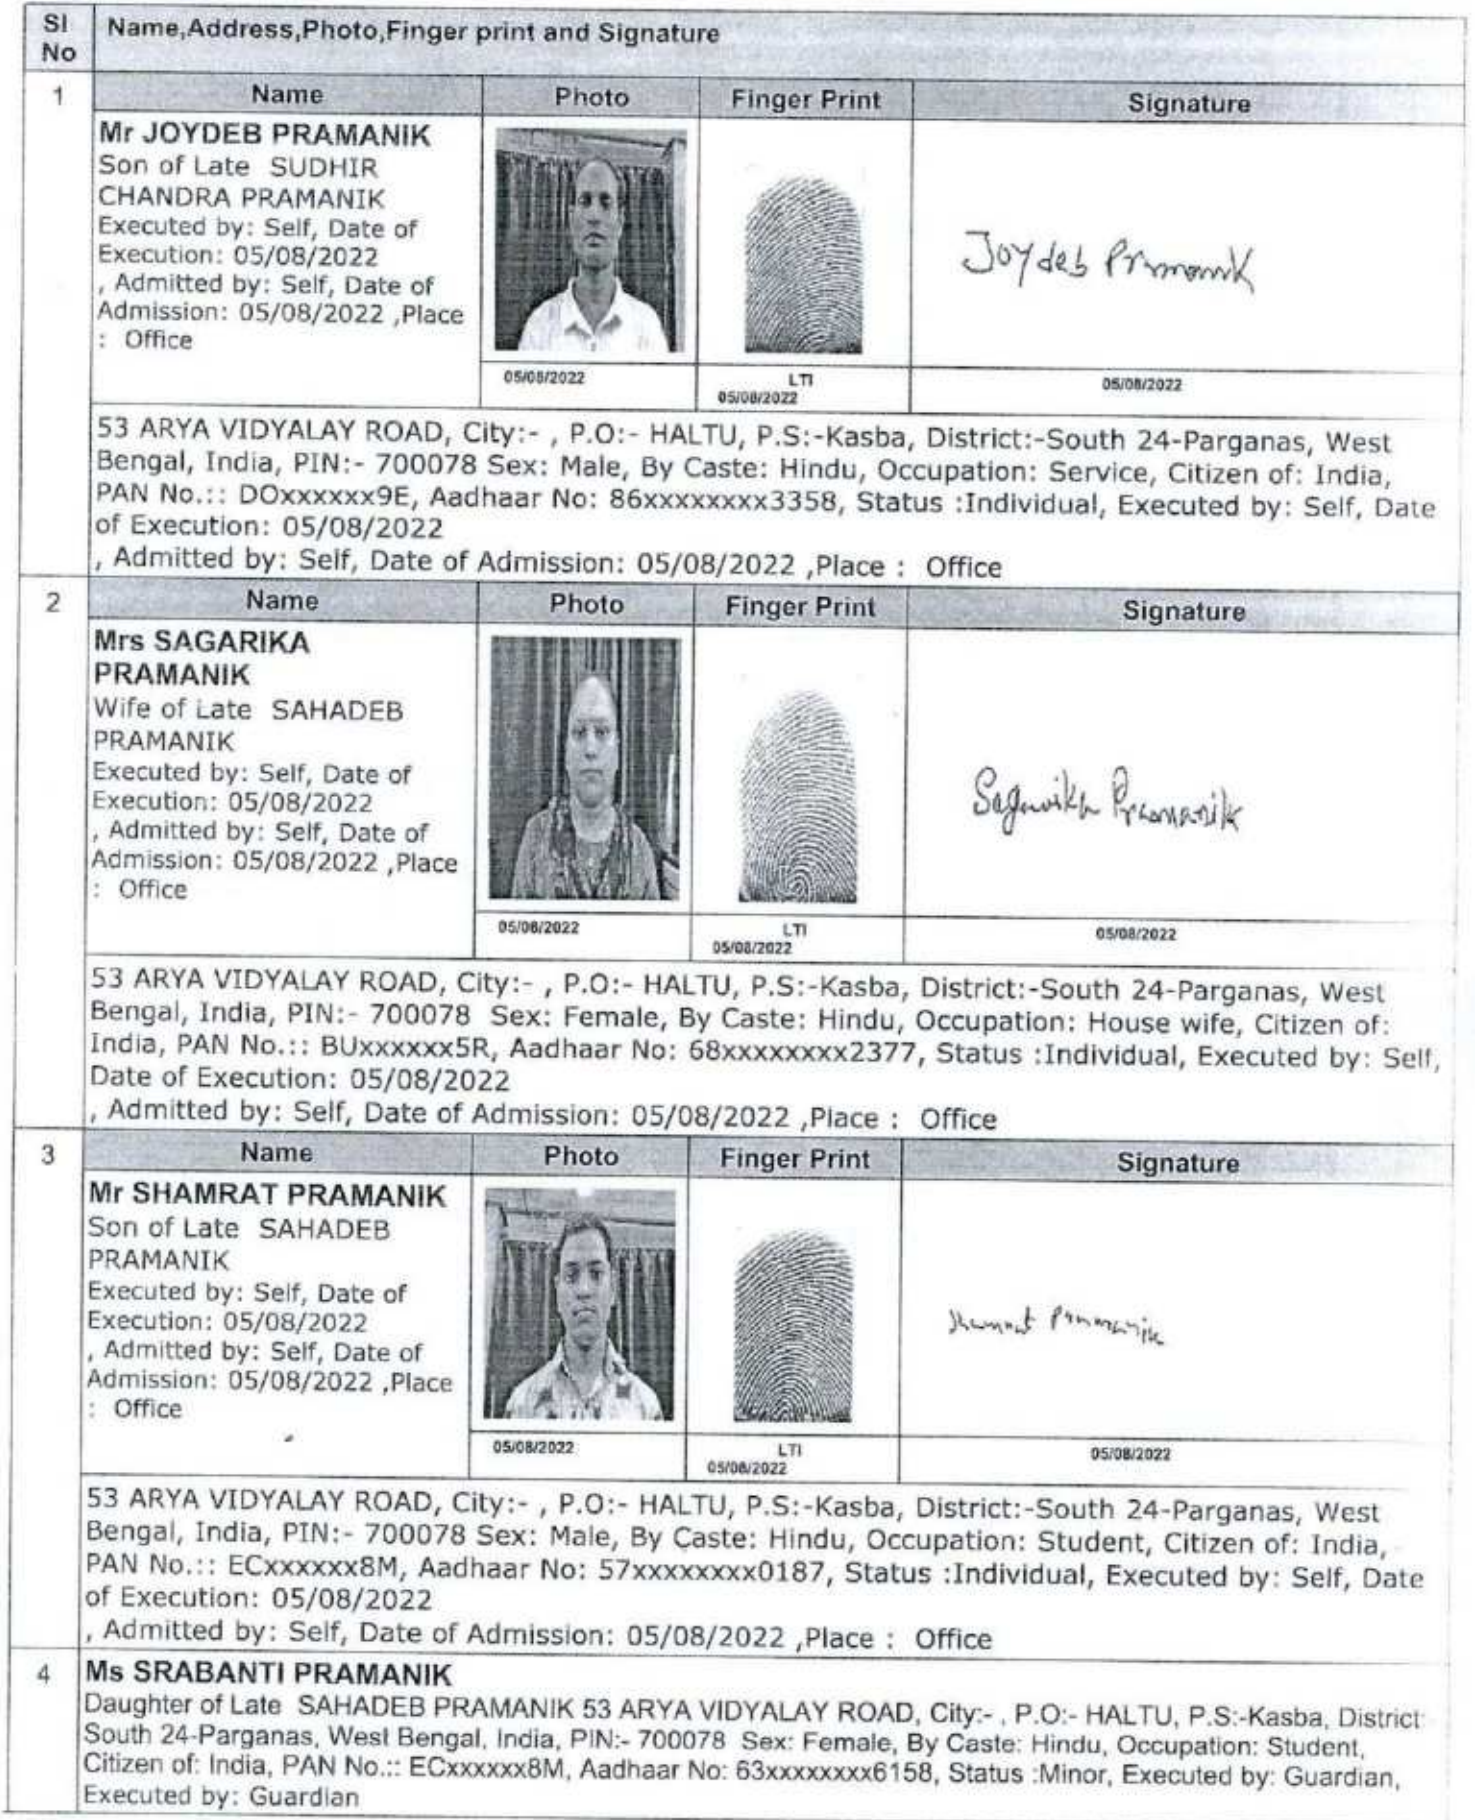 Sl No
Name,Address,Photo,Finger print and Signature
1
Name Photo Finger Print Signature
Mr JOYDEB PRAMANIK
Son of Late SUDHIR
CHANDRA PRAMANIK
Executed by: Self, Date of
Execution: 05/08/2022
, Admitted by: Self, Date of
Admission: 05/08/2022 ,Place
: Office
Joydeb Pramanik
05/08/2022
LTI
05/08/2022
05/08/2022
53 ARYA VIDYALAY ROAD, City:- , P.O:- HALTU, P.S:-Kasba, District:-South 24-Parganas, West
Bengal, India, PIN:- 700078 Sex: Male, By Caste: Hindu, Occupation: Service, Citizen of: India,
PAN No.:: DOxxxxxx9E, Aadhaar No: 86xxxxxxxx3358, Status :Individual, Executed by: Self, Date
of Execution: 05/08/2022
, Admitted by: Self, Date of Admission: 05/08/2022 ,Place : Office
2
Name Photo Finger Print Signature
Mrs SAGARIKA
PRAMANIK
Wife of Late SAHADEB
PRAMANIK
Executed by: Self, Date of
Execution: 05/08/2022
, Admitted by: Self, Date of
Admission: 05/08/2022 ,Place
: Office
Sagarika Pramanik
05/08/2022
LTI
05/08/2022
05/08/2022
53 ARYA VIDYALAY ROAD, City:- , P.O:- HALTU, P.S:-Kasba, District:-South 24-Parganas, West
Bengal, India, PIN:- 700078 Sex: Female, By Caste: Hindu, Occupation: House wife, Citizen of:
India, PAN No.:: BUxxxxxx5R, Aadhaar No: 68xxxxxxxx2377, Status :Individual, Executed by: Self,
Date of Execution: 05/08/2022
, Admitted by: Self, Date of Admission: 05/08/2022 ,Place : Office
3
Name Photo Finger Print Signature
Mr SHAMRAT PRAMANIK
Son of Late SAHADEB
PRAMANIK
Executed by: Self, Date of
Execution: 05/08/2022
, Admitted by: Self, Date of
Admission: 05/08/2022 ,Place
: Office
Shamrat Pramanik
05/08/2022
LTI
05/08/2022
05/08/2022
53 ARYA VIDYALAY ROAD, City:- , P.O:- HALTU, P.S:-Kasba, District:-South 24-Parganas, West
Bengal, India, PIN:- 700078 Sex: Male, By Caste: Hindu, Occupation: Student, Citizen of: India,
PAN No.:: ECxxxxxx8M, Aadhaar No: 57xxxxxxxx0187, Status :Individual, Executed by: Self, Date
of Execution: 05/08/2022
, Admitted by: Self, Date of Admission: 05/08/2022 ,Place : Office
4
Ms SRABANTI PRAMANIK
Daughter of Late SAHADEB PRAMANIK 53 ARYA VIDYALAY ROAD, City:- , P.O:- HALTU, P.S:-Kasba, District:
South 24-Parganas, West Bengal, India, PIN:- 700078 Sex: Female, By Caste: Hindu, Occupation: Student,
Citizen of: India, PAN No.:: ECxxxxxx8M, Aadhaar No: 63xxxxxxxx6158, Status :Minor, Executed by: Guardian,
Executed by: Guardian